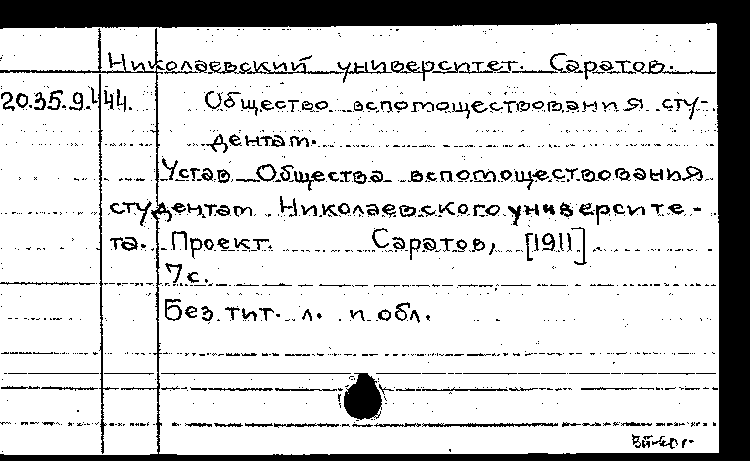 Николаевский университет. Саратов.
20.35.9.144. Общество вспомоществования сту-
дентам.
Устав Общества вспомоществования
студентам Николаевского университе-
та. Проект. Саратов, [1911].
7 с.
Без тит. л. и обл.